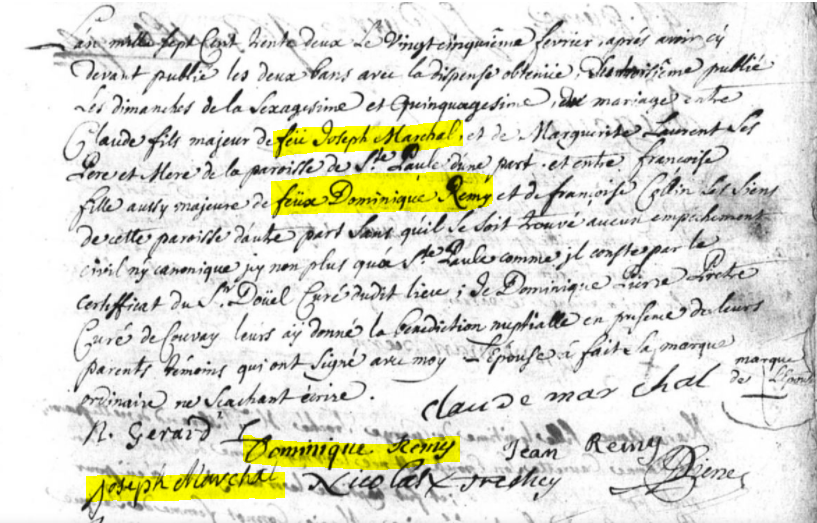 L'an mille sept Cent trente deux Le Vingtcinquiéme fevrier, aprés avoir cÿ
devant publié les deux bans avec la dispense obtenüe, publié
Les dimanches de la Sexagesime et Quinquagesime, mariage entre
Claude fils majeur de feü Joseph Marchal, et de Marguerite Laurent Ses
Pere et Mere de la paroisse de Ste Paule d'une part. et entre francoise
fille aussy majeure de feüx Dominique Remÿ et de françoise Collin Les Siens
de cette paroisse d'autre part Sans qu'il Se Soit trouvé aucun empechement
Civil nÿ canonique, nÿ non plus qua Ste Paule comme jl conste par le
certifficat du Sr. Doüel Curé dudit lieu ; Je Dominique Pierre Prêtre
Curé de Couvay leurs aÿ donné la benediction nuptialle en presence de leurs
parents témoins qui ont Signé avec moy L'Epouse à fait la marque
ordinaire ne Scachant écrire.
marque
de L'Epouse
Claude mar chal
N. Gerard
Dominique Remy
Jean Remy
Joseph Marchal
Nicolas
DPierre